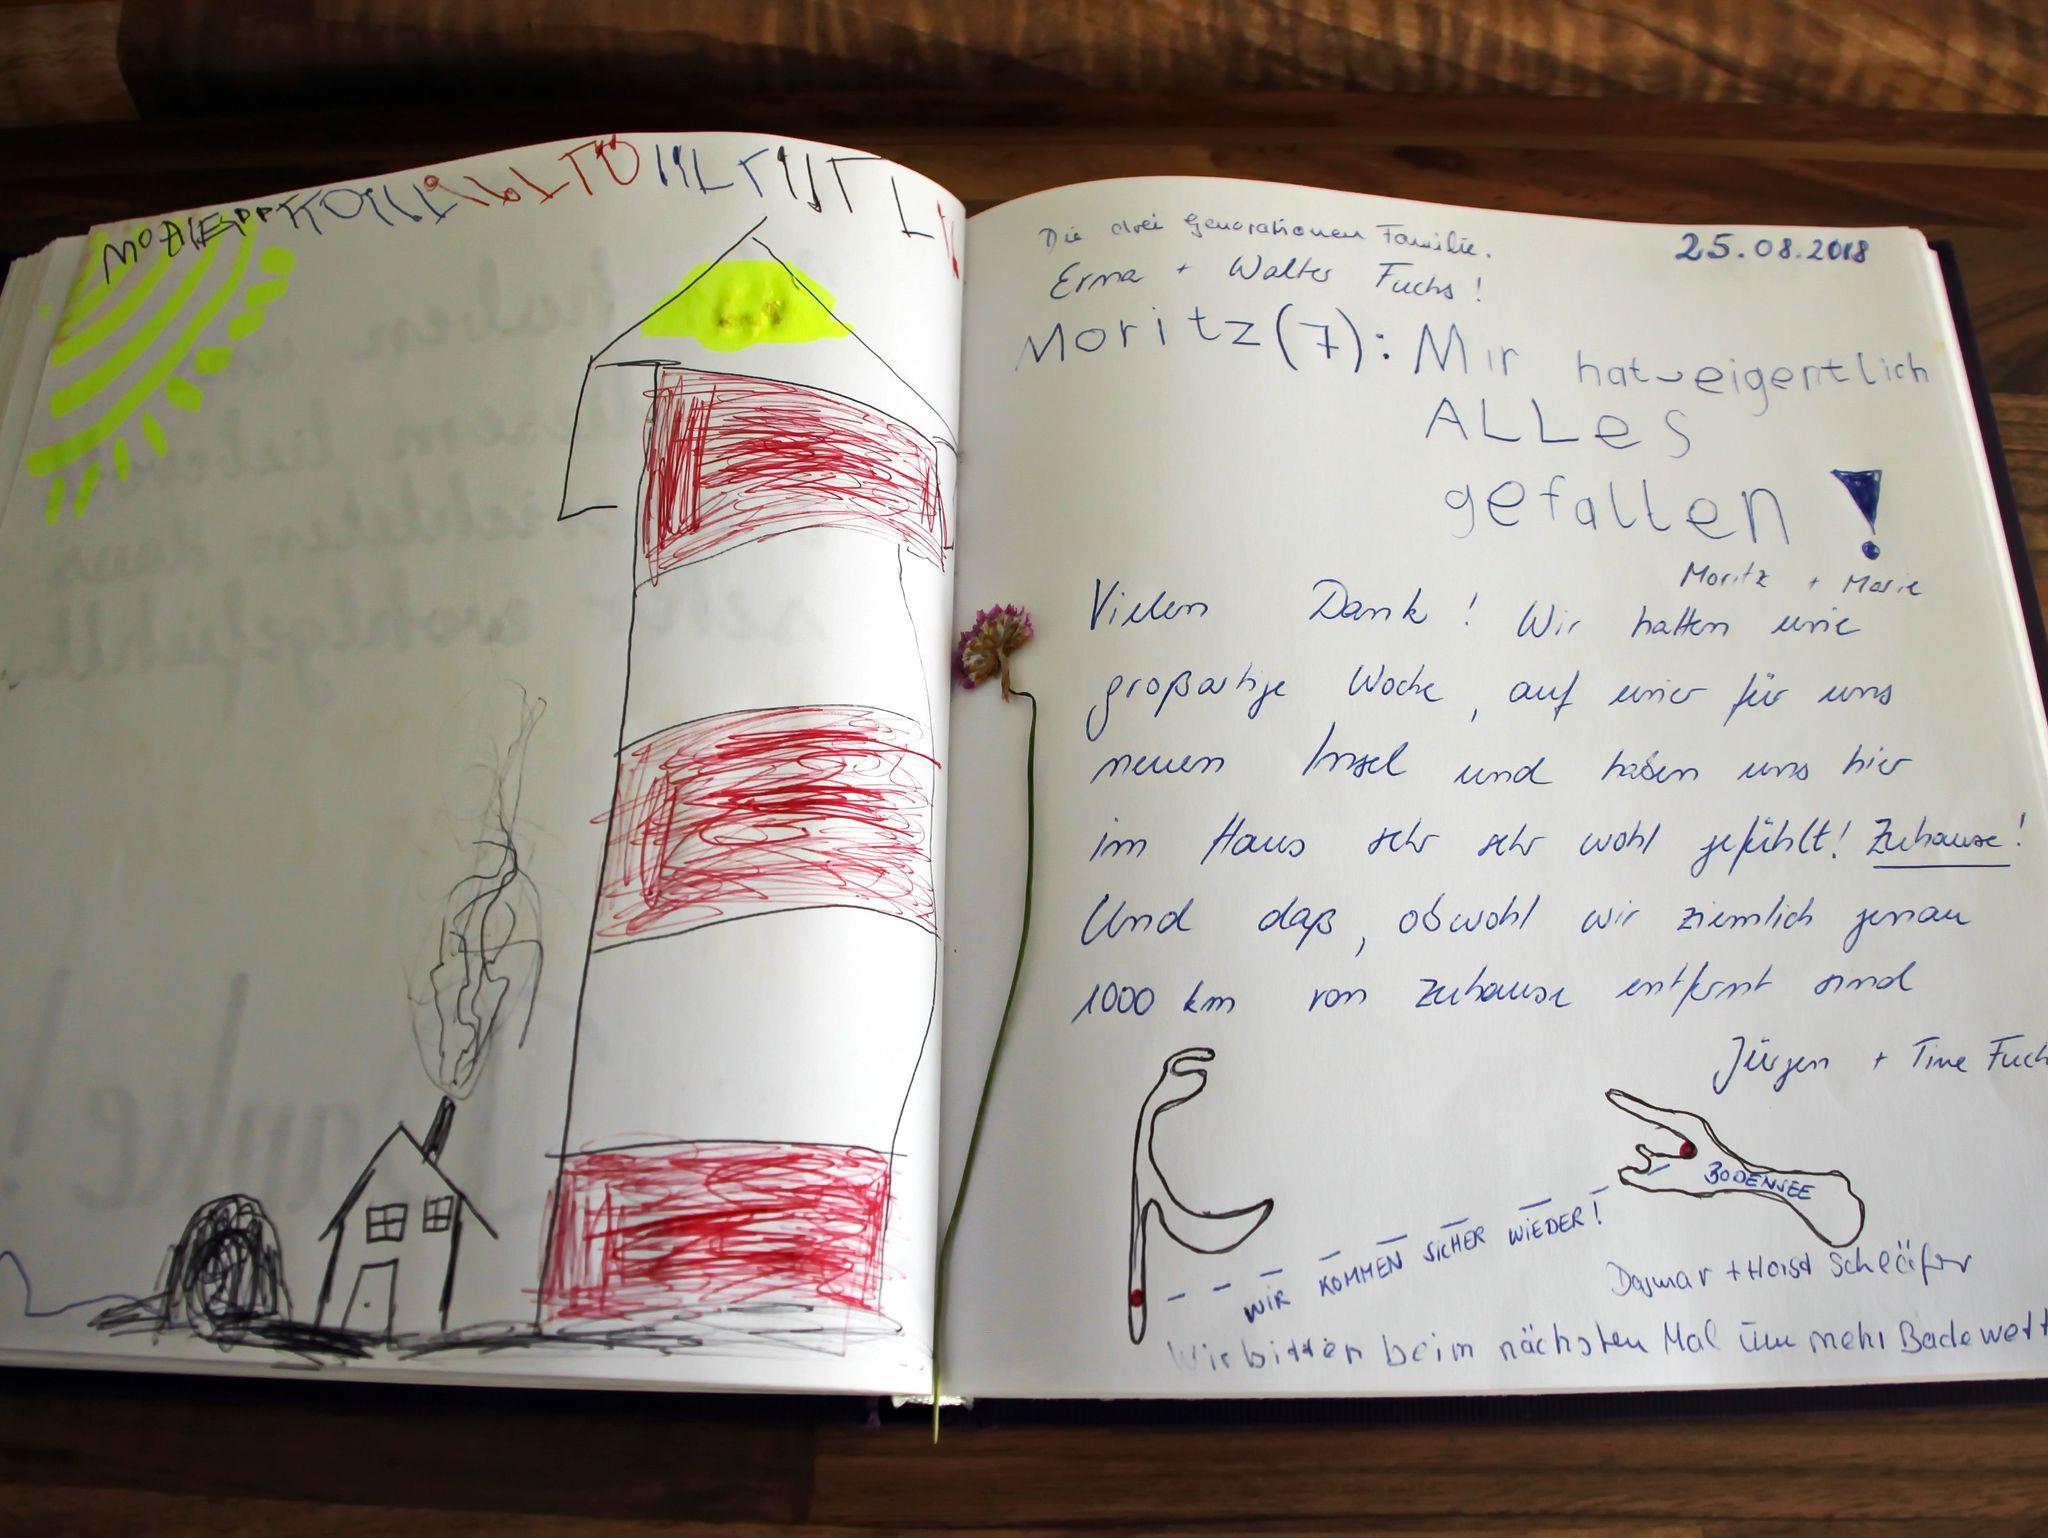 Die drei Generationen Familie.
25.08.2018
Erna + Walter Fuchs!
Moritz (7): Mir hat eigentlich
ALLes
gefallen!
Moritz + Marie
Vielen Dank! Wir hatten eine
großartige Woche, auf einer für uns
neuen Insel und haben uns hier
im Haus sehr sehr wohl gefühlt! Zuhause!
Und daß, obwohl wir ziemlich genau
1000 km von zuhause entfernt sind
Jürgen + Tine
BODENSEE
WIR KOMMEN SICHER WIEDER!
Dagmar + Horst Schläfer
Wir bitten beim nächsten Mal um mehr